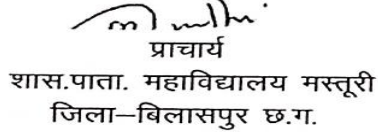 प्राचार्य
शास.पाता. महाविद्यालय मस्तूरी
जिला–बिलासपुर छ.ग.